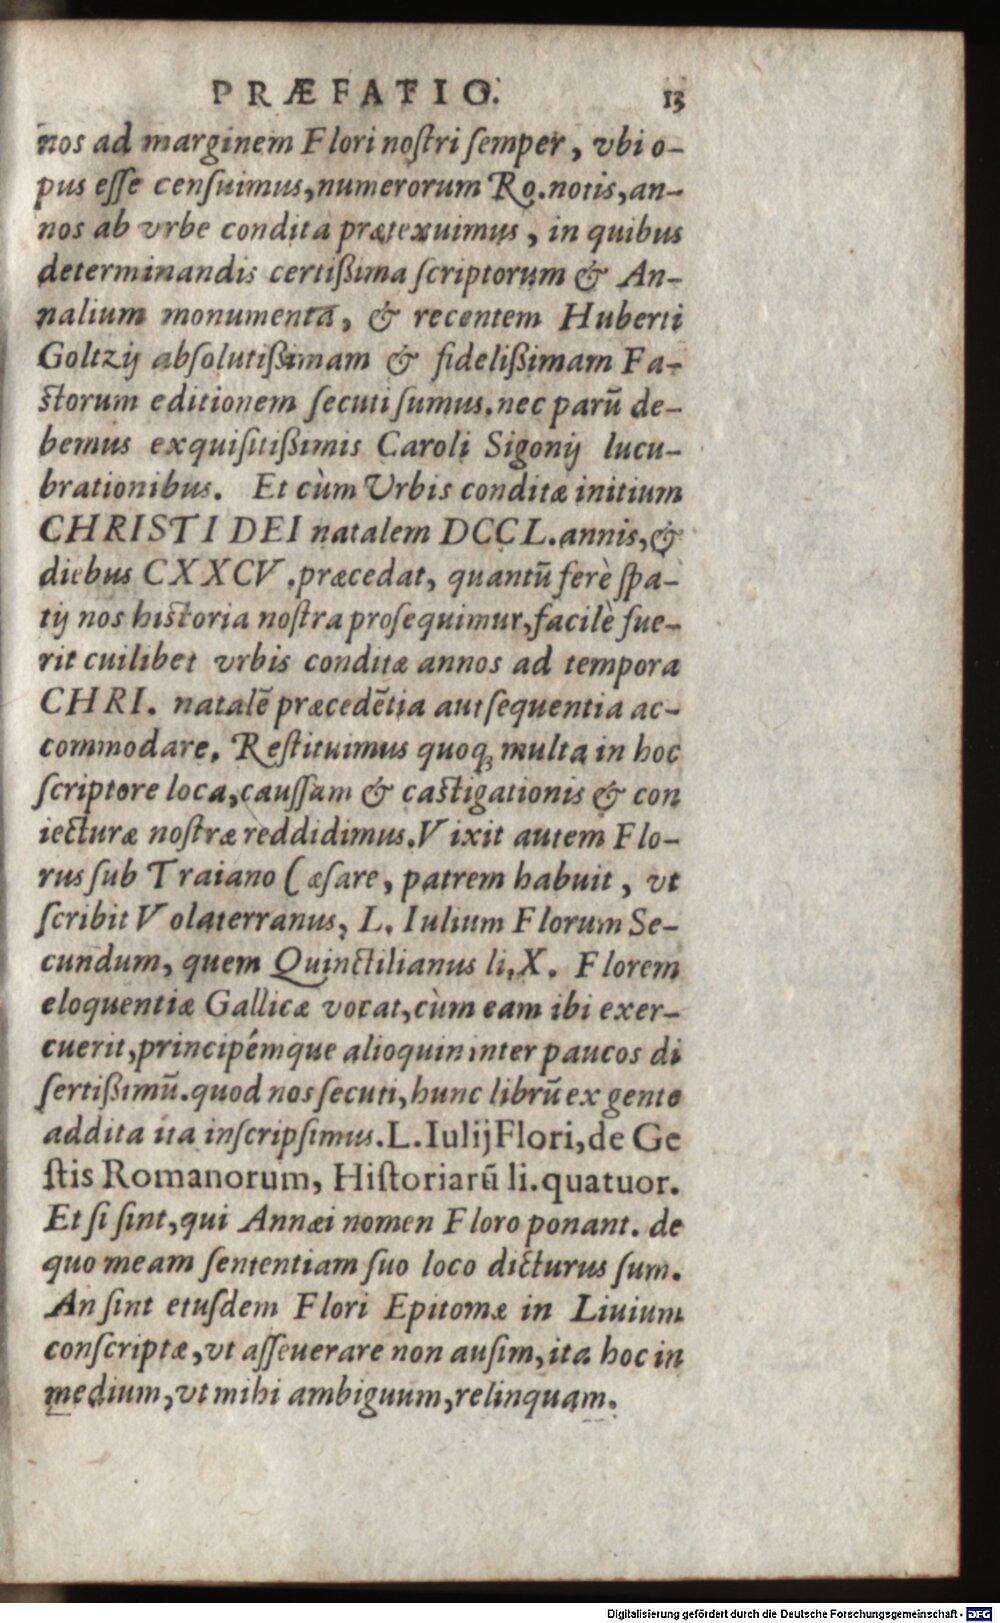 PRÆFATIO. 13
nos ad marginem Flori noſtri ſemper, vbi o-
pus eſſe cenſuimus, numerorum Ro. notis, an-
nos ab vrbe condita prætexuimus, in quibus
determinandis certißima ſcriptorum & An-
nalium monumenta, & recentem Huberti
Goltzij abſolutißimam & fidelißimam Fa-
ſtorum editionem ſecuti ſumus. nec parū de-
bemus exquiſitißimis Caroli Sigonij lucu-
brationibus. Et cùm Vrbis conditæ initium
CHRISTI DEI natalem DCCL. annis, &
diebus CXXCV. præcedat, quantū ferè ſpa-
tij nos hiſtoria noſtra proſequimur, facilè fue-
rit cuilibet vrbis conditæ annos ad tempora
CHRI. natalē præcedētia aut ſequentia ac-
commodare. Reſtituimus quoq; multa in hoc
ſcriptore loca, cauſſam & caſtigationis & con
iecturæ noſtræ reddidimus. Vixit autem Flo-
rus ſub Traiano Cæſare, patrem habuit, vt
ſcribit Volaterranus, L. Iulium Florum Se-
cundum, quem Quinctilianus li. X. Florem
eloquentiæ Gallicæ vocat, cùm eam ibi exer-
cuerit, principémque alioquin inter paucos di
ſertißimū. quod nos ſecuti, hunc librū ex gente
addita ita inſcripſimus. L. Iulij Flori, de Ge
ſtis Romanorum, Hiſtoriarū li. quatuor.
Et ſi ſint, qui Annæi nomen Floro ponant. de
quo meam ſententiam ſuo loco dicturus ſum.
An ſint eiuſdem Flori Epitomæ in Liuium
conſcriptæ, vt aſſeuerare non auſim, ita hoc in
medium, vt mihi ambiguum, relinquam.
Digitalisierung gefördert durch die Deutsche Forschungsgemeinschaft - DFG